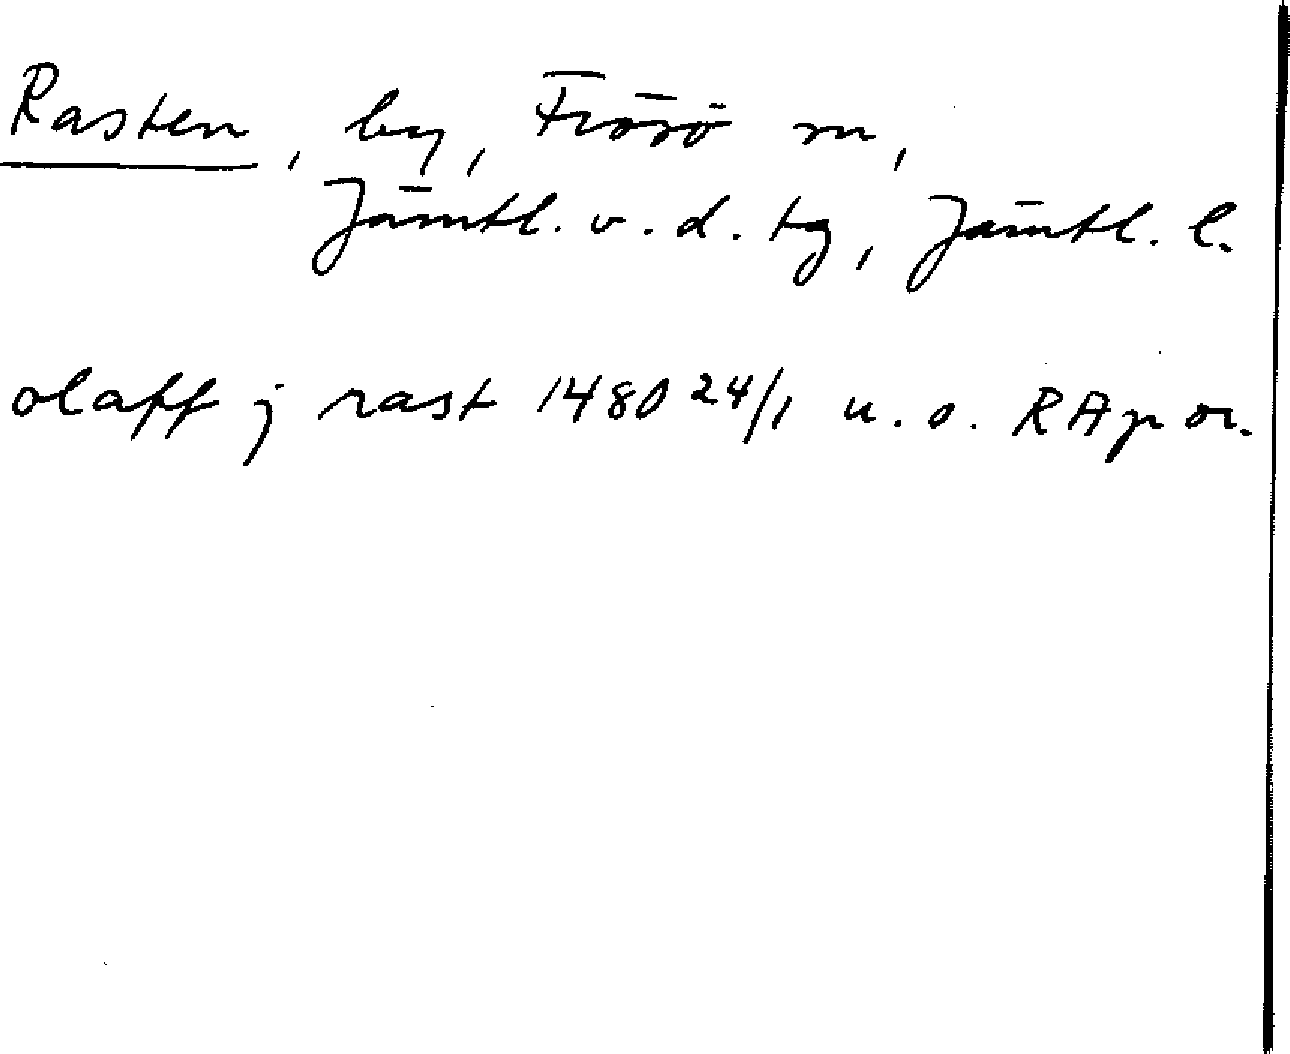 Rasten, by, Frösö sn,
Jämtl. v. d. tg, Jämtl. l.
olaff j rast 1480 24/1 u. o. RAp or.